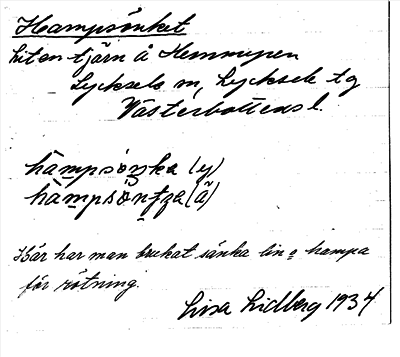 Hampsönket
liten tjärn å Hemmyren
Lycksele m, Lycksele tg
Västerbottens l.
hàmpsönka (y)
hàmpsöntza (ã)
Här har man brukat sänka lin o hampa
för rötning.
Lisa Lidberg 1934